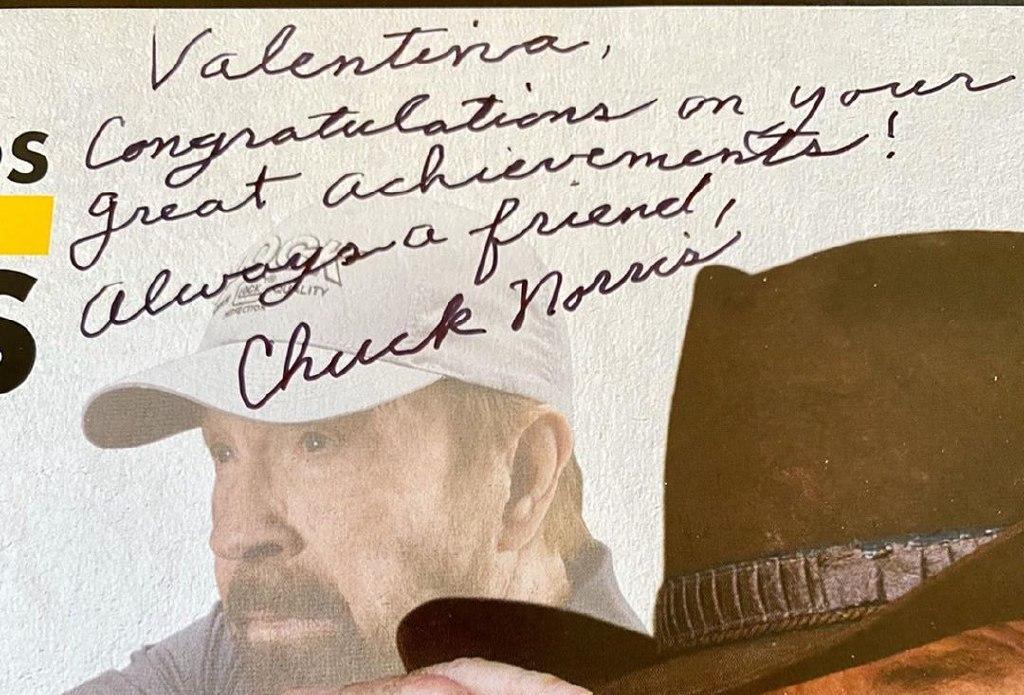 Valentina,
Congratulations on your
great achievements!
Always a friend,
Chuck Norris
os
S
QUALITY